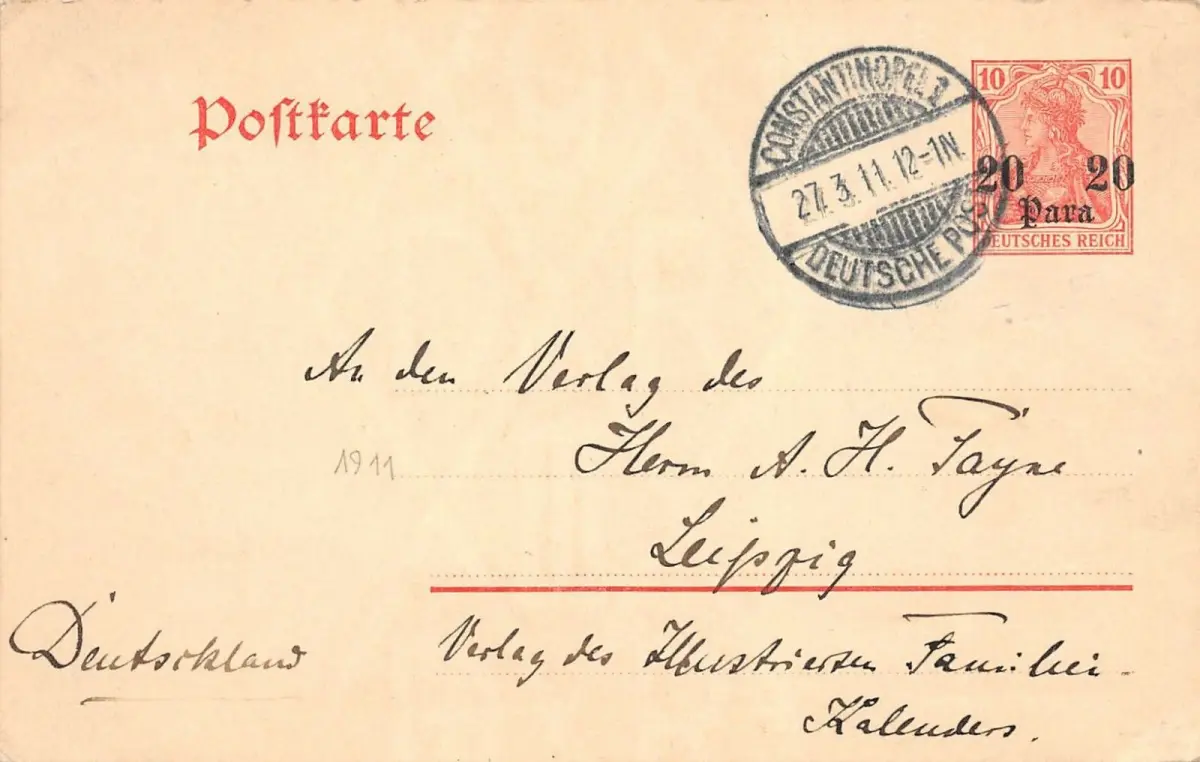 Postkarte
CONSTANTINOPEL 1
27.3.11.12-1N.
DEUTSCHE POST
10 10
20 20
Para
DEUTSCHES REICH
An den Verlag des
Herrn A. H. Payne
1911
Leipzig
Deutschland
Verlag des Illustrierten Familien-
Kalenders.